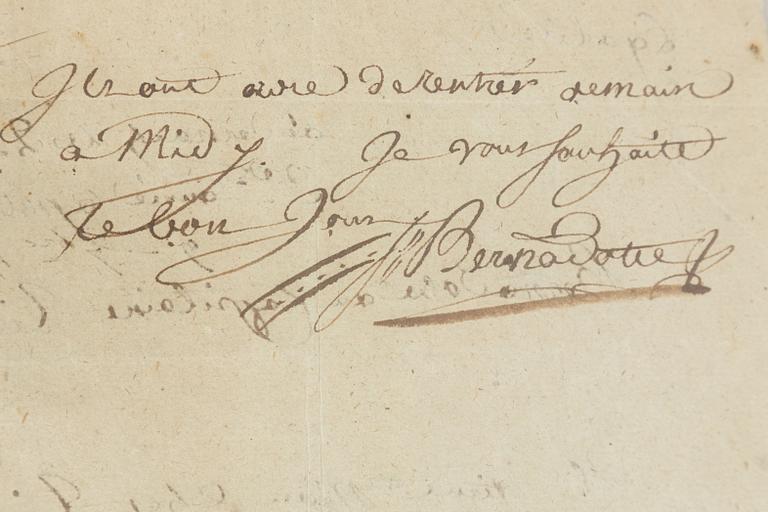 Ils ont ordre de rentrer demain
a Midy. Je vous souhaite
le bon Jour
Bernadotte